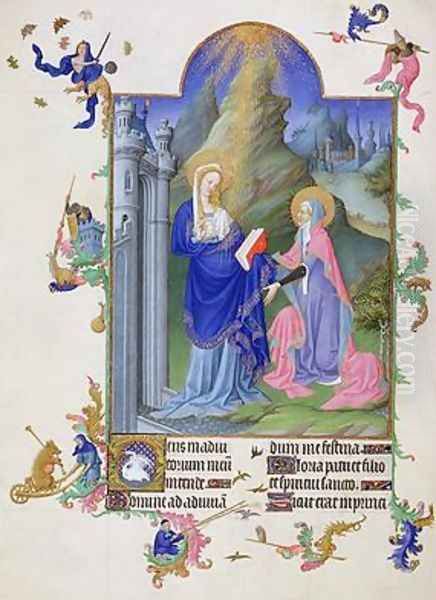 Deus in adiu
torium meum
intende
Domine ad adiuuā
dum me festina
Gloria patri et filio
et spiritui sancto.
Sicut erat in princi